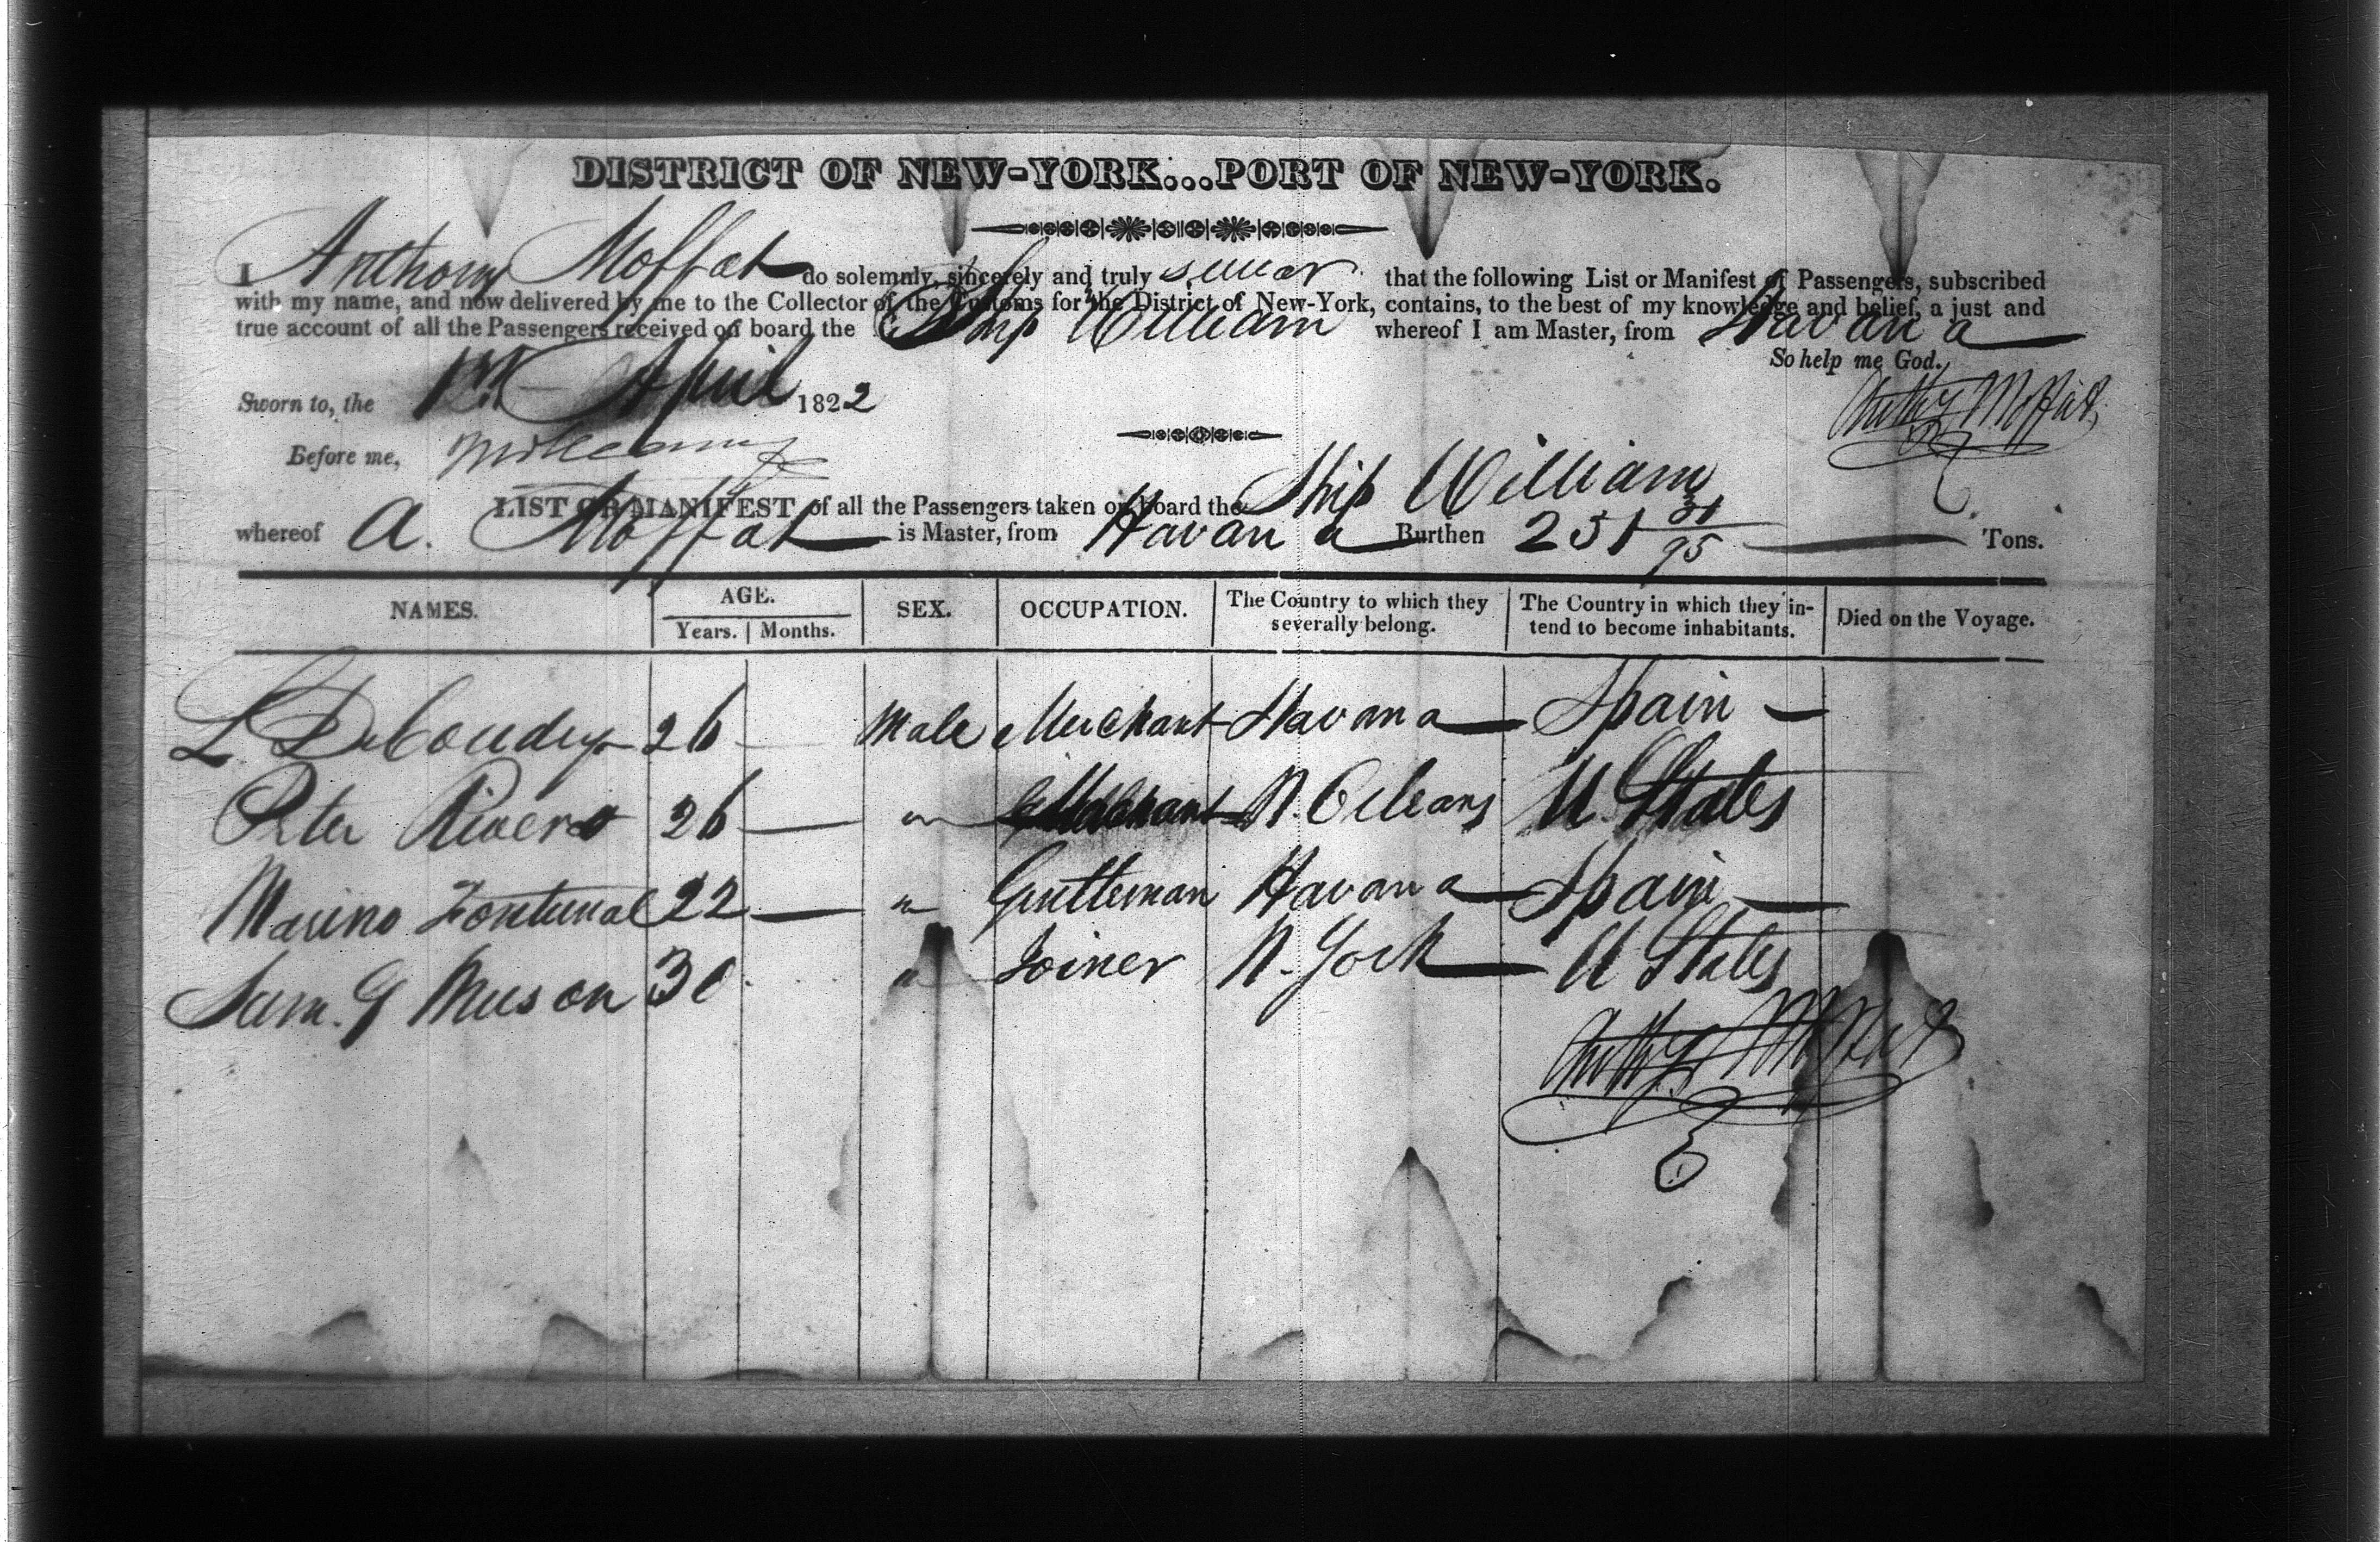 DISTRICT OF NEW-YORK...PORT OF NEW-YORK.
I Anthony Moffat do solemnly, sincerely and truly swear that the following List or Manifest of Passengers, subscribed
with my name, and now delivered by me to the Collector of the Customs for the District of New-York, contains, to the best of my knowledge and belief, a just and
true account of all the Passengers received on board the Ship William whereof I am Master, from Havana
So help me God.
Sworn to, the 1st April 1822
Anthy Moffat
Before me,
LIST OR MANIFEST of all the Passengers taken on board the Ship William
whereof A. Moffat is Master, from Havana Burthen 251 31/95 Tons.
NAMES. AGE. Years. Months. SEX. OCCUPATION. The Country to which they severally belong. The Country in which they intend to become inhabitants. Died on the Voyage.
L 26 — Male Merchant Havana Spain —
Peter Rivero 26 — " Merchant N. Orleans U. States
Marino 22 — " Gentleman Havana Spain —
Sam. G Muson 30 " Joiner N. York U States
Anthy Moffat